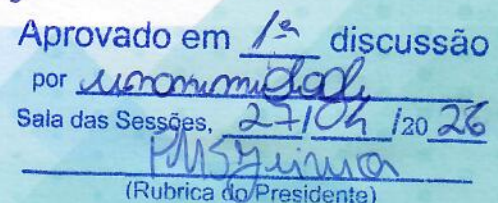 Aprovado em 1ª discussão
por unanimidade
Sala das Sessões, 27/04 /20 26
(Rubrica do Presidente)